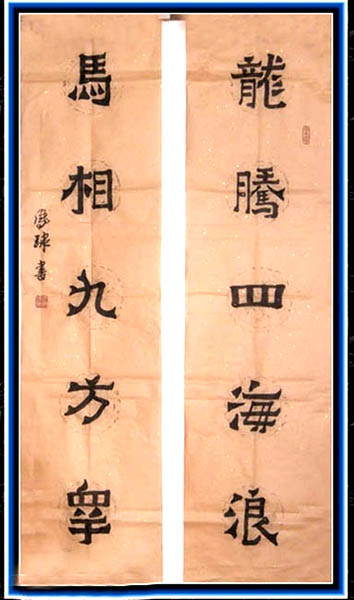 龍騰四海浪
馬相九方皋
球書